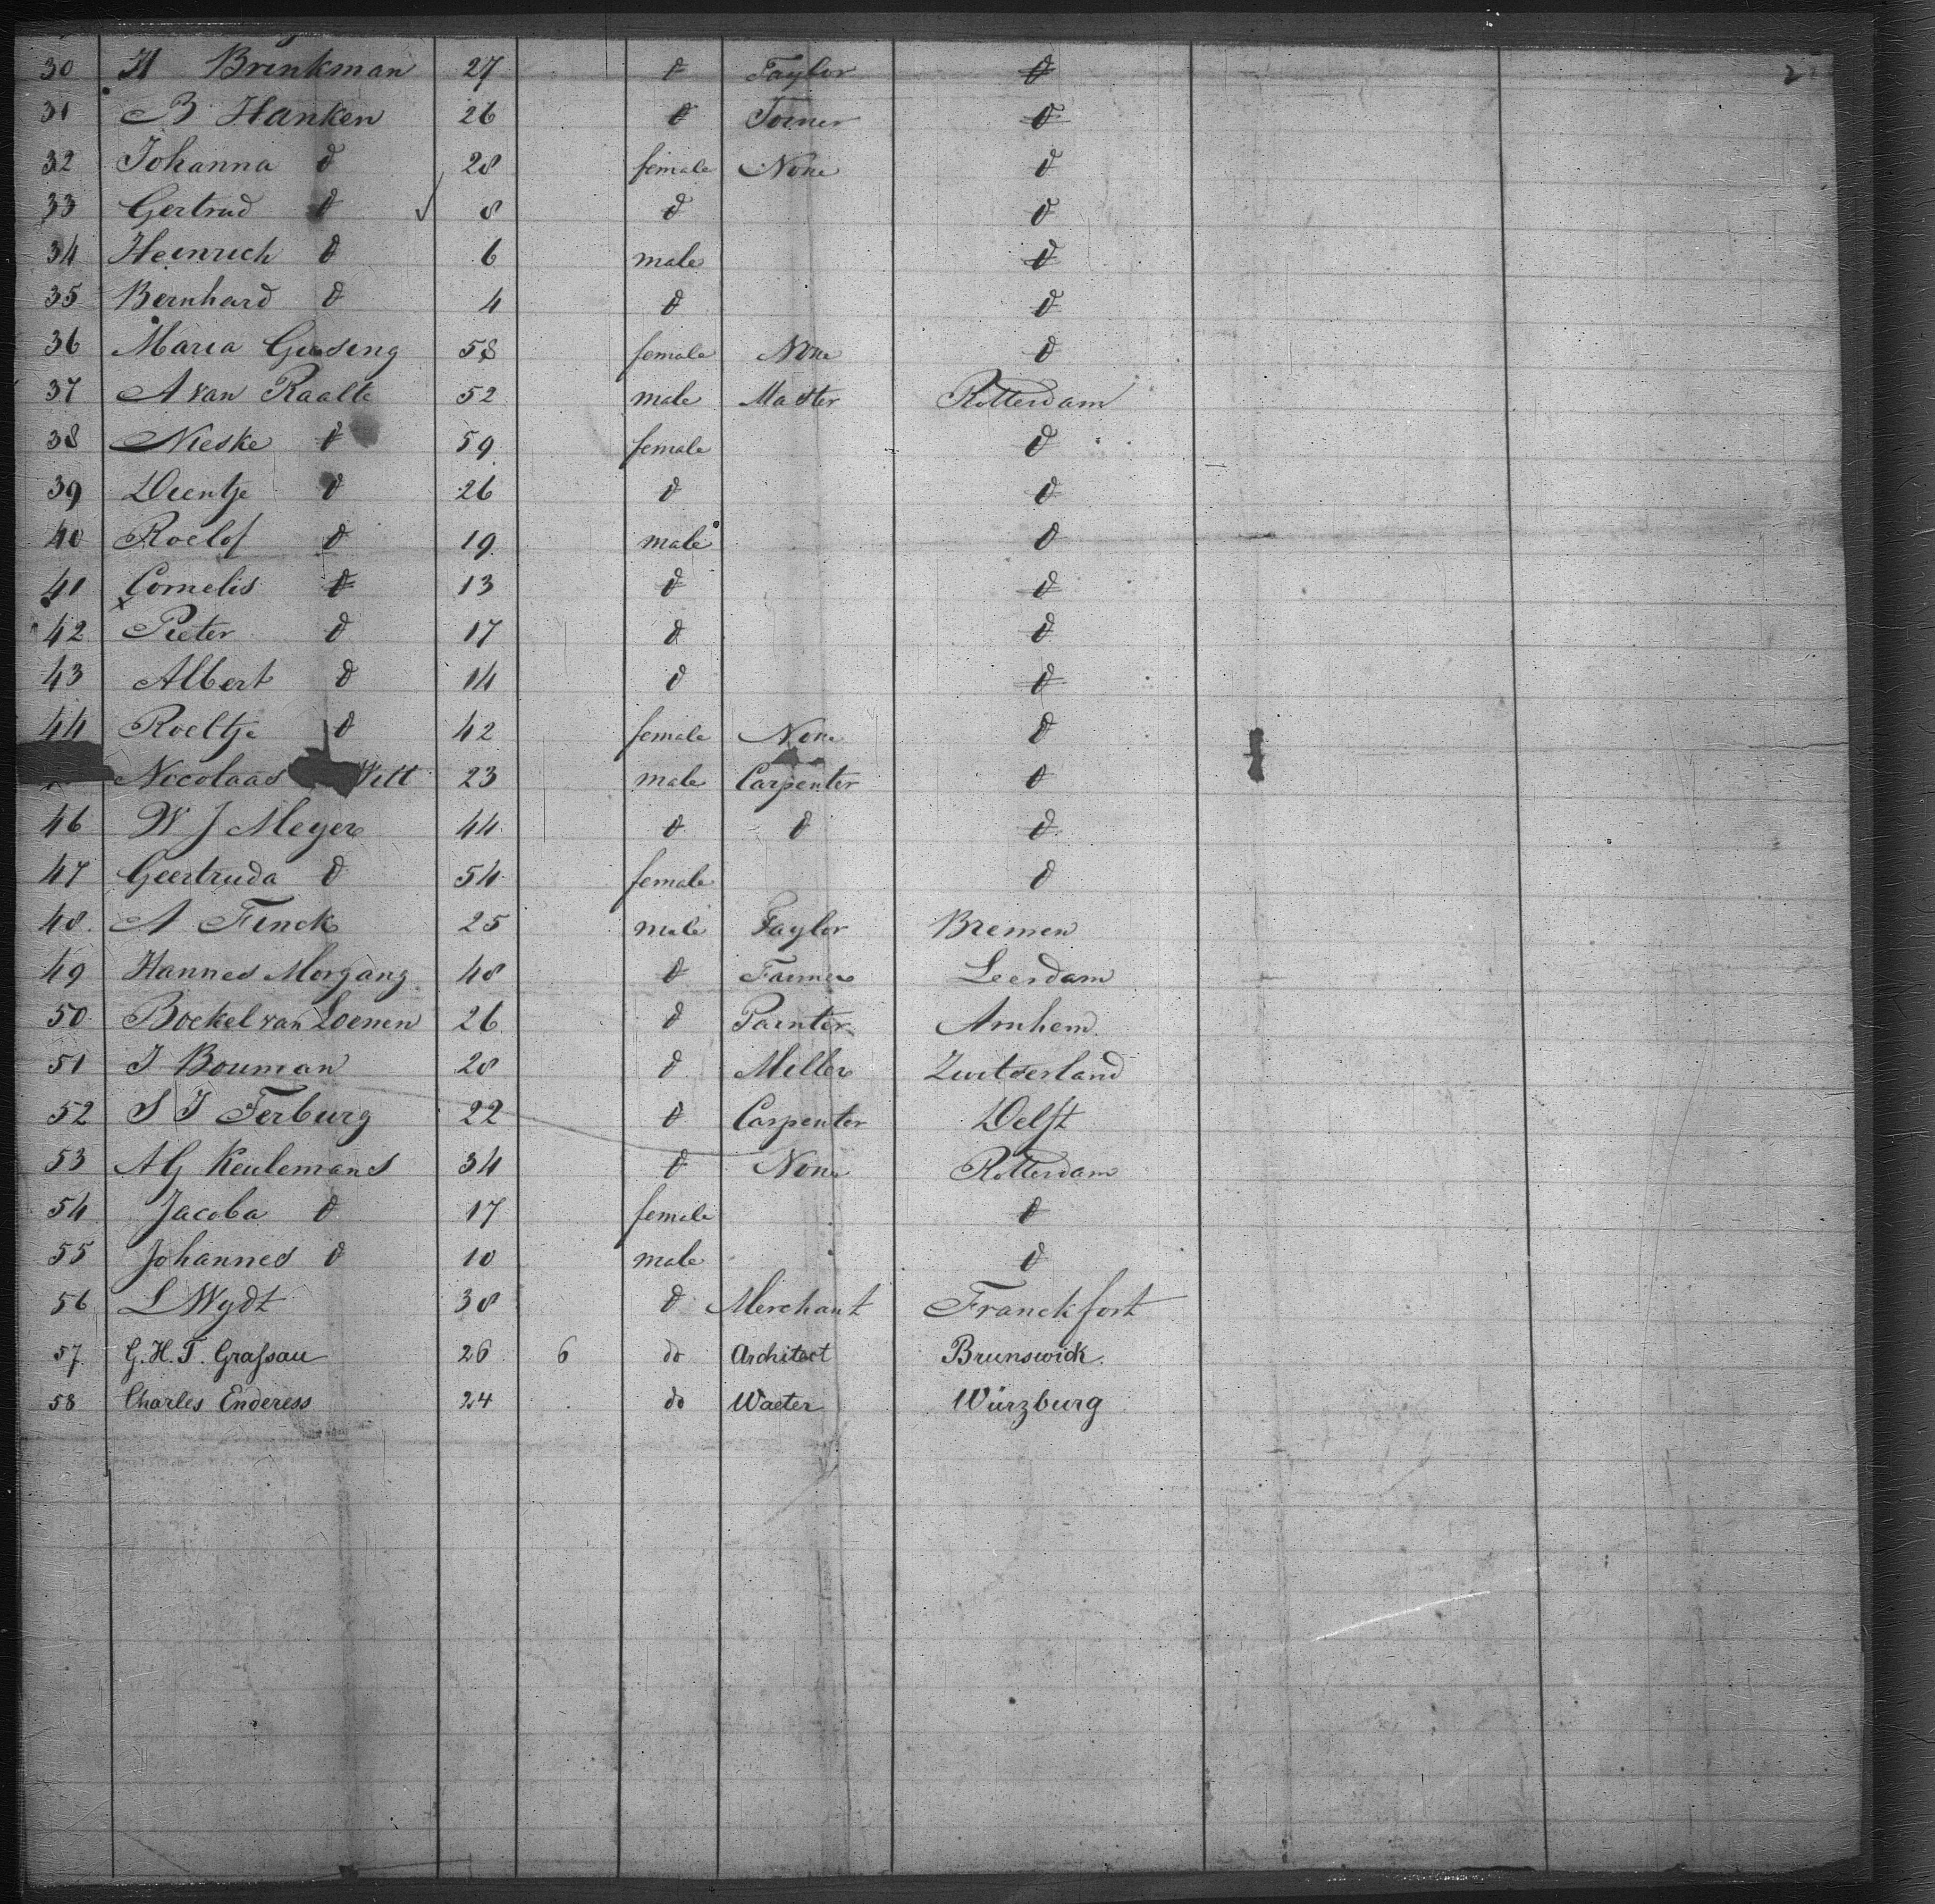 2
30 H Brinkman 27 d Taylor d
31 B Hanken 26 d Joiner d
32 Johanna d 28 female None d
33 Gertrud d 8 d d
34 Heinrich d 6 male d
35 Bernhard d 4 d d
36 Maria Giesing 58 female None d
37 A van Raalte 52 male Master Rotterdam
38 Nieske d 59 female d
39 Dientje d 26 d d
40 Roelof d 19 male d
41 Cornelis d 13 d d
42 Pieter d 17 d d
43 Albert d 14 d d
44 Roeltje d 42 female None d
Nicolaas Witt 23 male Carpenter d
46 W J Meyer 44 d d d
47 Geertruda d 54 female d
48 A Finck 25 male Taylor Bremen
49 Hannes Morgang 48 d Farmer Leerdam
50 Boekel van Loenen 26 d Painter Arnhem
51 J Bouman 28 d Miller Zwitserland
52 S J Terburg 22 d Carpenter Delft
53 A G Keulemans 34 d None Rotterdam
54 Jacoba d 17 female d
55 Johannes d 10 male d
56 L Wydt 38 d Merchant Franckfort
57 G. H. T. Graſsau 26 6 do Architect Brunswick.
58 Charles Enderess 24 do Waeter Würzburg